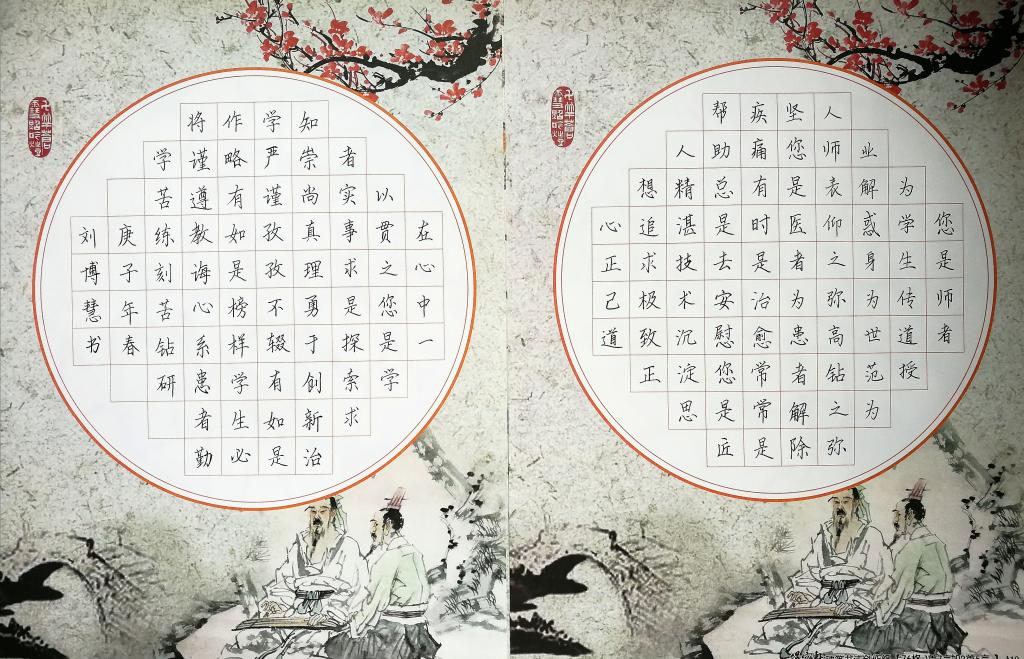 您是师者
为学生传道授
业解惑身为世范为
人师表仰之弥高钻之弥
坚您是医者为患者解除
疾痛有时是治愈常常是
帮助总是去安慰您是匠
人精湛技术沉淀思
想追求极致正
心正己道
在心中一
以贯之您是学
者实事求是探索求
知崇尚真理勇于创新治
学严谨孜孜不辍有如是
作略有如是榜样学生必
将谨遵教诲心系患者勤
学苦练刻苦钻研
庚子年春
刘博慧书